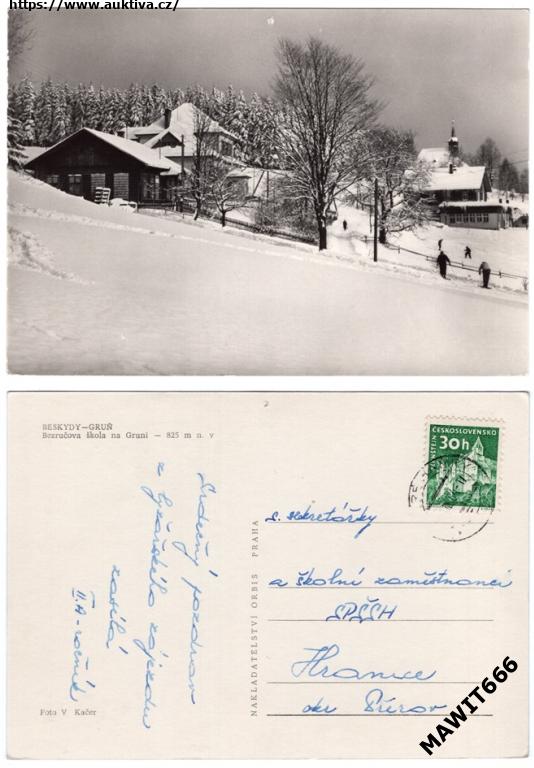 https://www.auktiva.cz/
BESKYDY—GRUŇ
Bezručova škola na Gruni — 825 m n. v
Srdečný pozdrav
z lyžařského zájezdu
zasílá
II.A - ročník
Foto V Kačer
NAKLADATELSTVÍ ORBIS PRAHA
ČESKOSLOVENSKO
30h
s. sekretářky
a školní zaměstnanci
SPŠSH
Hranice
okr Přerov
MAWIT666